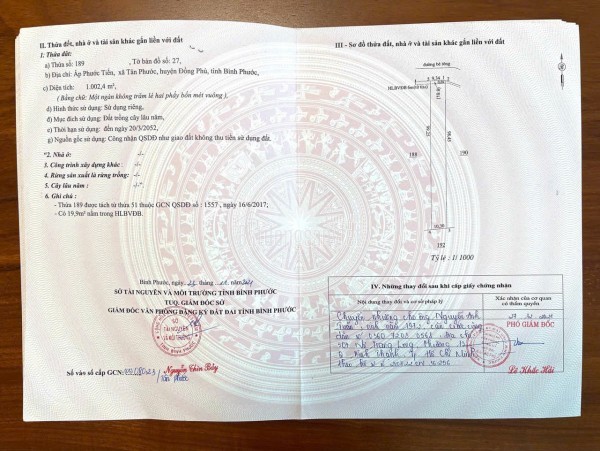 II. Thửa đất, nhà ở và tài sản khác gắn liền với đất
1. Thửa đất:
a) Thửa số: 189 , Tờ bản đồ số: 27,
b) Địa chỉ: Ấp Phước Tiến, xã Tân Phước, huyện Đồng Phú, tỉnh Bình Phước,
c) Diện tích: 1.002,4 m²,
(Bằng chữ: Một ngàn không trăm lẻ hai phẩy bốn mét vuông)
d) Hình thức sử dụng: Sử dụng riêng,
đ) Mục đích sử dụng: Đất trồng cây lâu năm,
e) Thời hạn sử dụng: đến ngày 20/3/2052,
g) Nguồn gốc sử dụng: Công nhận QSDĐ như giao đất không thu tiền sử dụng đất.
*2. Nhà ở: -/-
3. Công trình xây dựng khác: -/-
4. Rừng sản xuất là rừng trồng: -/-
5. Cây lâu năm: -/-*
6. Ghi chú:
- Thửa 189 được tách từ thửa 51 thuộc GCN QSDĐ số: 1557, ngày 16/6/2017;
- Có 19,9m² nằm trong HLBVĐB.
Bình Phước, ngày tháng
SỞ TÀI NGUYÊN VÀ MÔI TRƯỜNG TỈNH BÌNH PHƯỚC
TUQ. GIÁM ĐỐC SỞ
GIÁM ĐỐC VĂN PHÒNG ĐĂNG KÝ ĐẤT ĐAI TỈNH BÌNH PHƯỚC
SỞ
TÀI NGUYÊN
VÀ MÔI TRƯỜNG
Nguyễn Chín Bảy
Số vào sổ cấp GCN:
Tân Phước
III - Sơ đồ thửa đất, nhà ở và tài sản khác gắn liền với đất
đường bê tông
HLBVĐB
188
190
192
Tỉ lệ 1/ 1000
IV. Những thay đổi sau khi cấp giấy chứng nhận
Nội dung thay đổi và cơ sở pháp lý
Xác nhận của cơ quan có thẩm quyền
Chuyển nhượng cho ông Nguyễn Anh
PHÓ GIÁM ĐỐC
Lê Khắc Hải